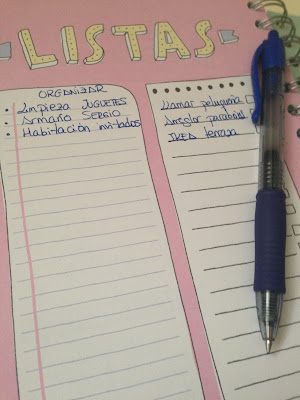 LISTAS
ORGANIZAR
• Limpieza JUGUETES
• Armario SERGIO
• Habitación invitados
Llamar peluquería
Arreglar parabrisas
IKEA terraza